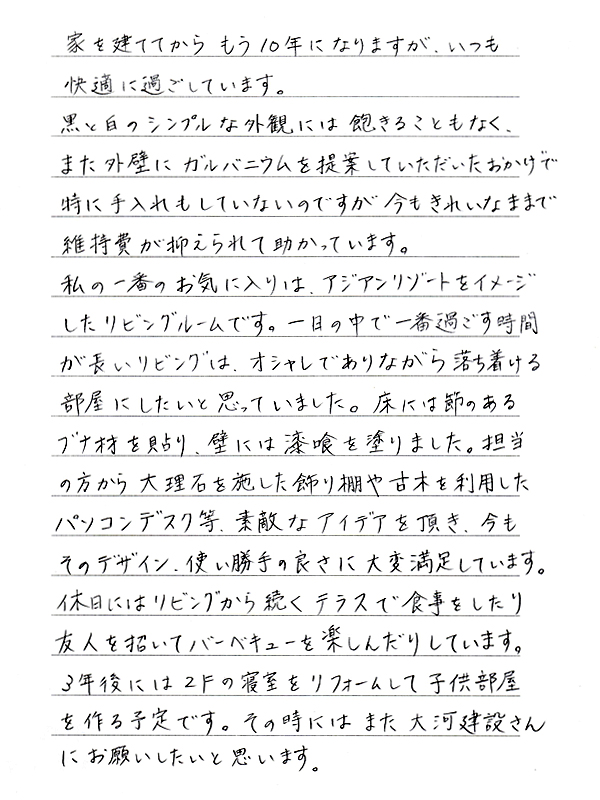 家を建ててから もう10年になりますが、いつも
快適に過ごしています。
黒と白のシンプルな外観には 飽きることもなく、
また外壁に ガルバニウムを提案していただいたおかげで
特に手入れもしていないのですが 今もきれいなままで
維持費が抑えられて助かっています。
私の一番のお気に入りは、アジアンリゾートをイメージ
したリビングルームです。一日の中で一番過ごす時間
が長いリビングは、オシャレでありながら落ち着ける
部屋にしたいと思っていました。床には節のある
ブナ材を貼り、壁には漆喰を塗りました。担当
の方から 大理石を施した飾り棚や古木を利用した
パソコンデスク等、素敵なアイデアを頂き、今も
そのデザイン、使い勝手の良さに 大変満足しています。
休日にはリビングから続くテラスで食事をしたり
友人を招いてバーベキューを楽しんだりしています。
3年後には2Fの寝室をリフォームして子供部屋
を作る予定です。その時には また大河建設さん
にお願いしたいと思います。